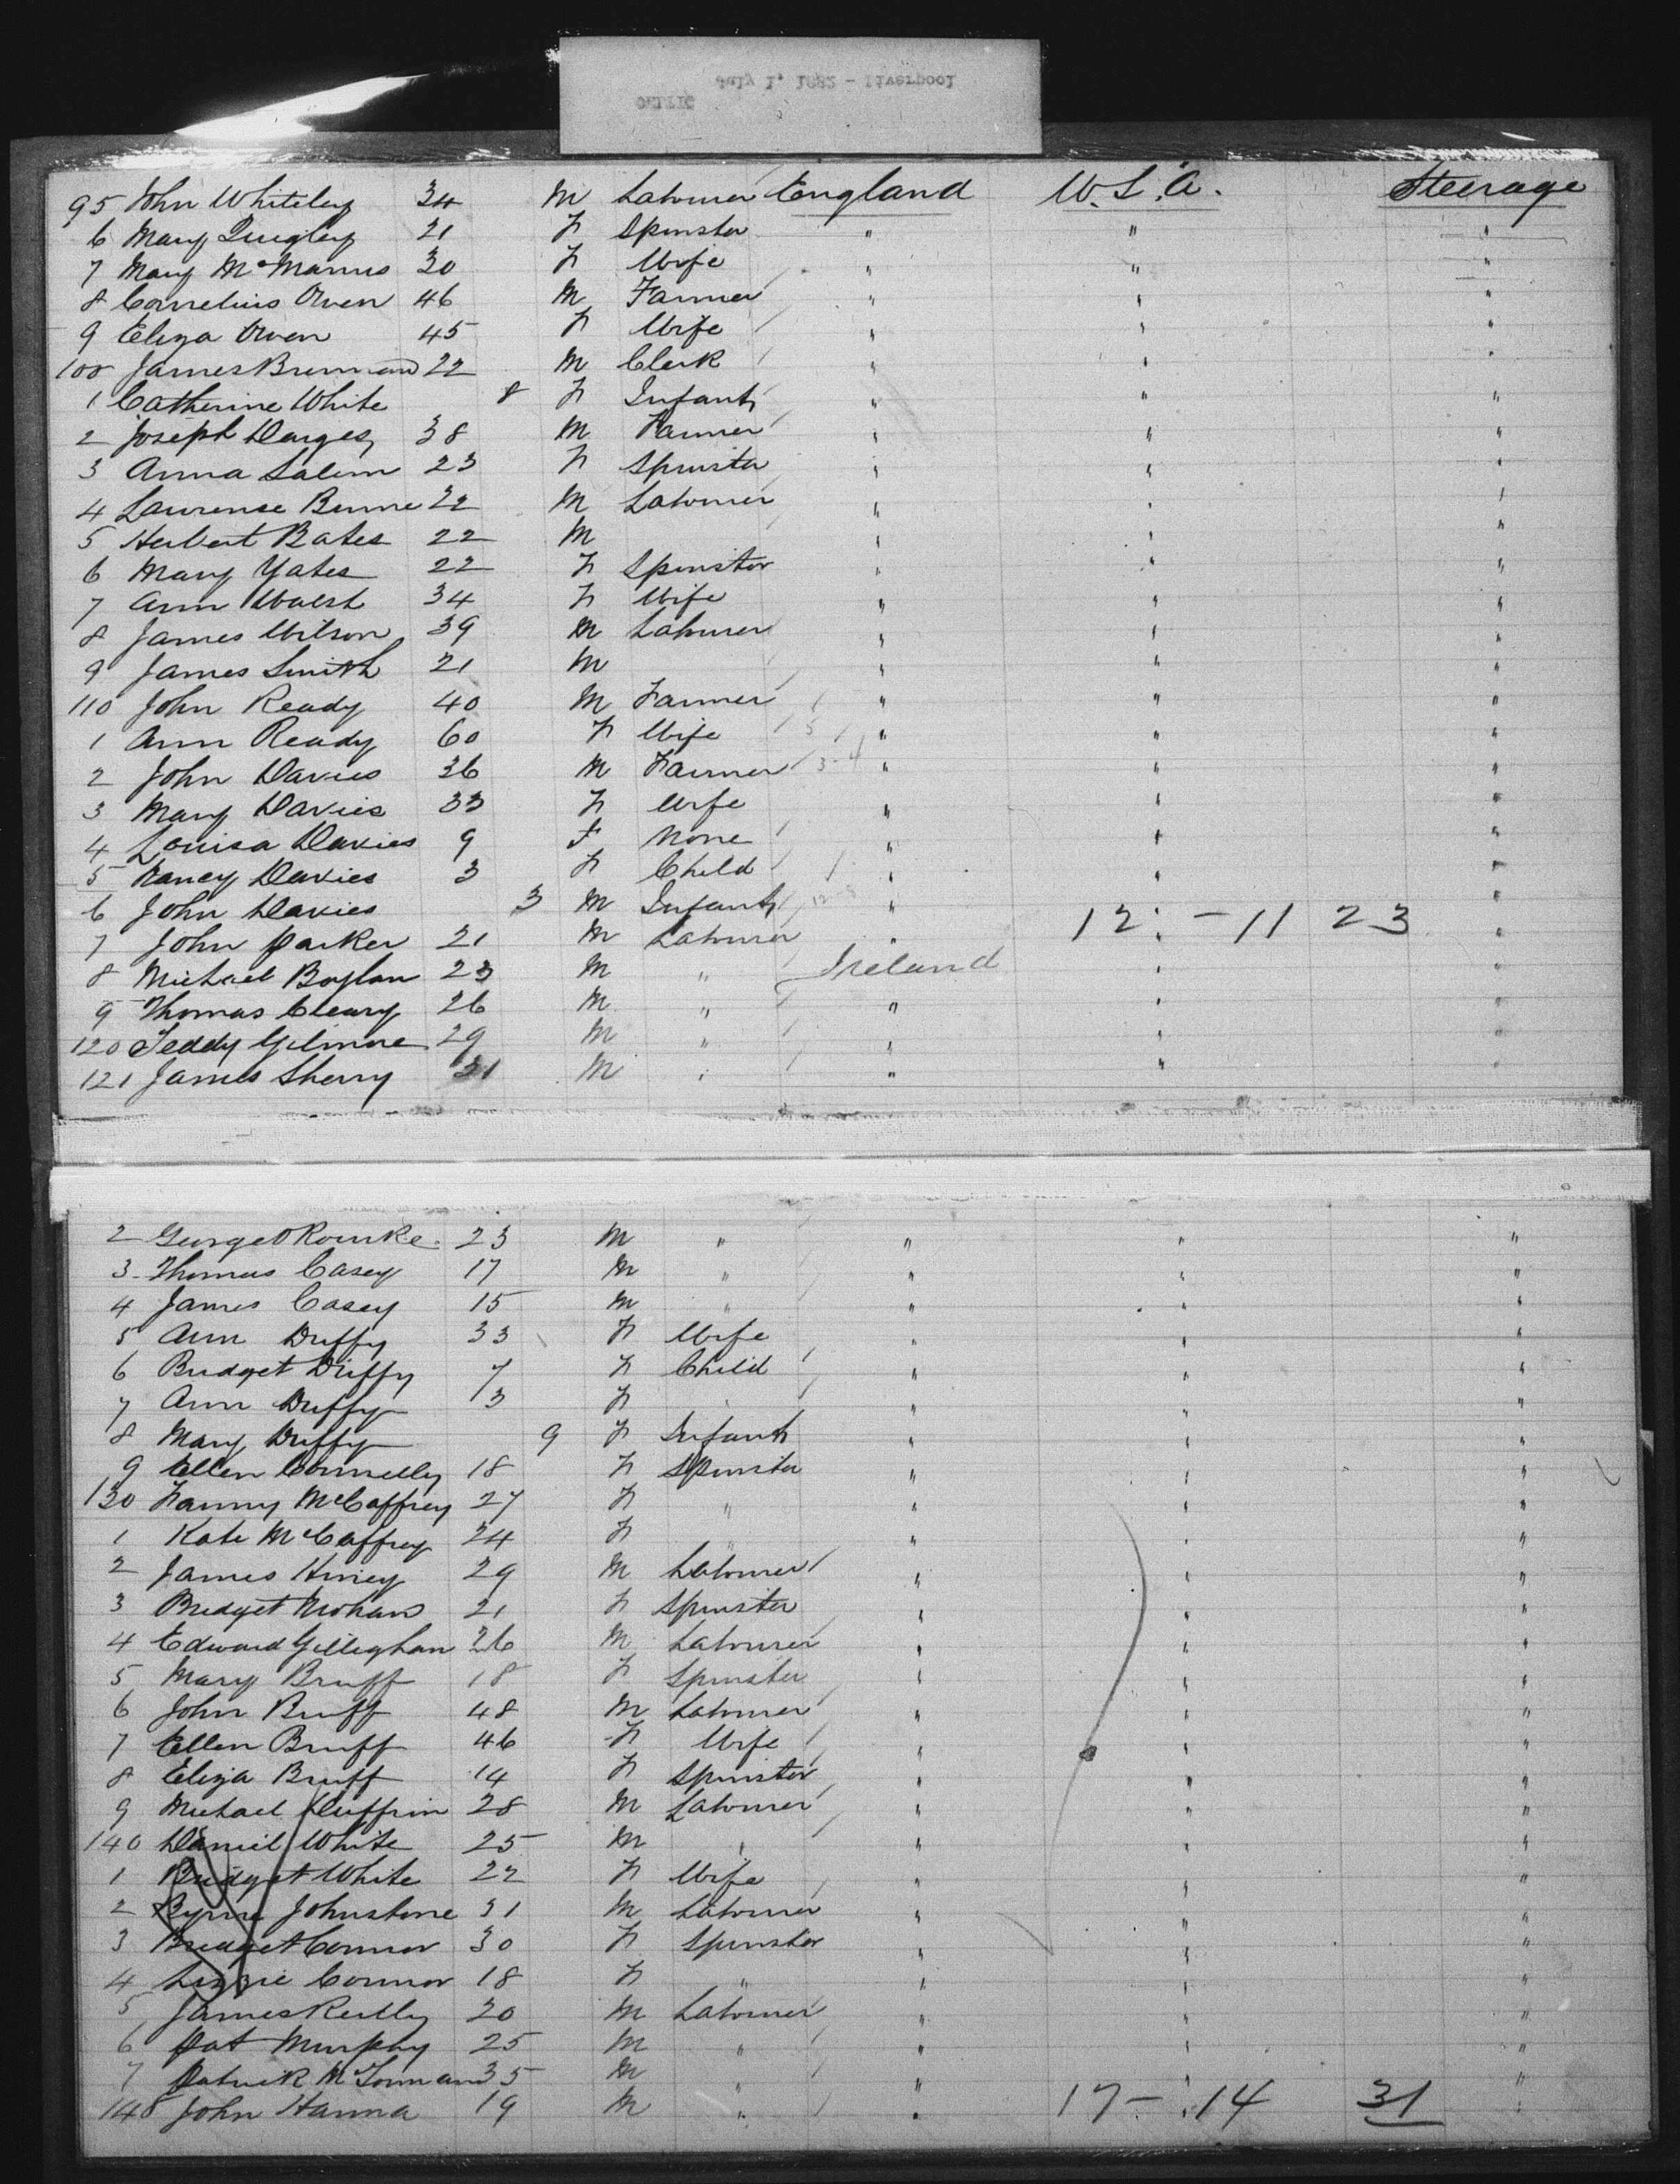 CELTIC
July 1, 1882 - Liverpool
95 John Whiteley 34 M Labourer England U.S.A. Steerage
6 Mary Quigley 21 F Spinster " " "
7 Mary McManus 30 F Wife " " "
8 Cornelius Owen 46 M Farmer " " "
9 Eliza Owen 45 F Wife " " "
100 James 22 M Clerk " " "
1 Catherine White 8 F Infant " " "
2 Joseph 38 M Farmer " " "
3 Anna Salem 23 F Spinster " " "
4 Lawrense 22 M Labourer " " "
5 Herbert Bates 22 M " " "
6 Mary Yates 22 F Spinster " " "
7 Ann Walsh 34 F Wife " " "
8 James Wilson 39 M Labourer " " "
9 James Smith 21 M " " "
110 John Ready 40 M Farmer " " "
1 Ann Ready 60 F Wife " " "
2 John Davies 36 M Farmer 3-4 " " "
3 Mary Davies 33 F Wife " " "
4 Louisa Davies 9 F None " " "
5 Nancy Davies 3 F Child " " "
6 John Davies 3 M Infant " " "
7 John Parker 21 M Labourer " 12 - 11 23 "
8 Michael Boylan 23 M " Ireland " "
9 Thomas Cleary 26 M " " " "
120 Teddy Gilmore 29 M " " " "
121 James Sherry 31 M " " " "
2 George ORourke 23 M " " " "
3 Thomas Casey 17 M " " " "
4 James Casey 15 M " " " "
5 Ann Duffy 33 F Wife " " "
6 Bridget Duffy 7 F Child " " "
7 Ann Duffy 3 F " " " "
8 Mary Duffy 9 F Infant " " "
9 Ellen Connelly 18 F Spinster " " "
130 Fanny McCaffrey 27 F " " " "
1 Kate McCaffrey 24 F " " " "
2 James Hiney 29 M Labourer " " "
3 Bridget Mohan 21 F Spinster " " "
4 Edward Gilleghan 26 M Labourer " " "
5 Mary Bruff 18 F Spinster " " "
6 John Bruff 48 M Labourer " " "
7 Ellen Bruff 46 F Wife " " "
8 Eliza Bruff 14 F Spinster " " "
9 Michael 28 M Labourer " " "
140 Daniel White 25 M " " " "
1 Bridget White 22 F Wife " " "
2 Byrne Johnstone 31 M Labourer " " "
3 Bridget Connor 30 F Spinster " " "
4 Lizzie Connor 18 F " " " "
5 James Reilly 20 M Labourer " " "
6 Pat Murphy 25 M " " " "
7 Patrick 35 M " " " "
148 John Hanna 19 M " " 17 - 14 31 "